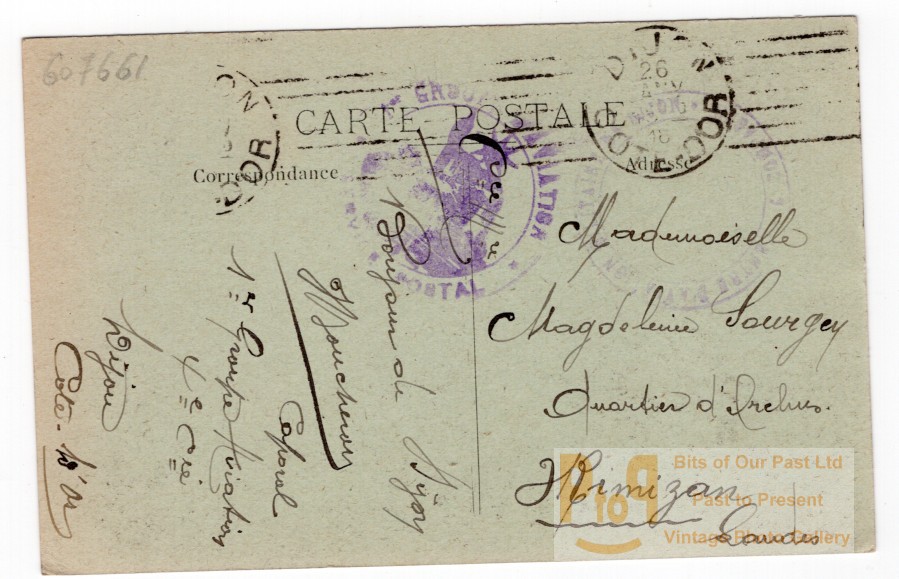 607661
CARTE POSTALE
Correspondance
Adresse
DIJON
26
18
COTE D'OR
AVIATION
POSTAL
Bonjour de Dijon
Caporal
1er Groupe Aviation
4e Cie
Dijon
Côte-d'Or
Mademoiselle
Magdeleine Sourgey
Quartier d'
Mimizan
Landes
PtoP
Bits of Our Past Ltd
Past to Present
Vintage Photo Gallery